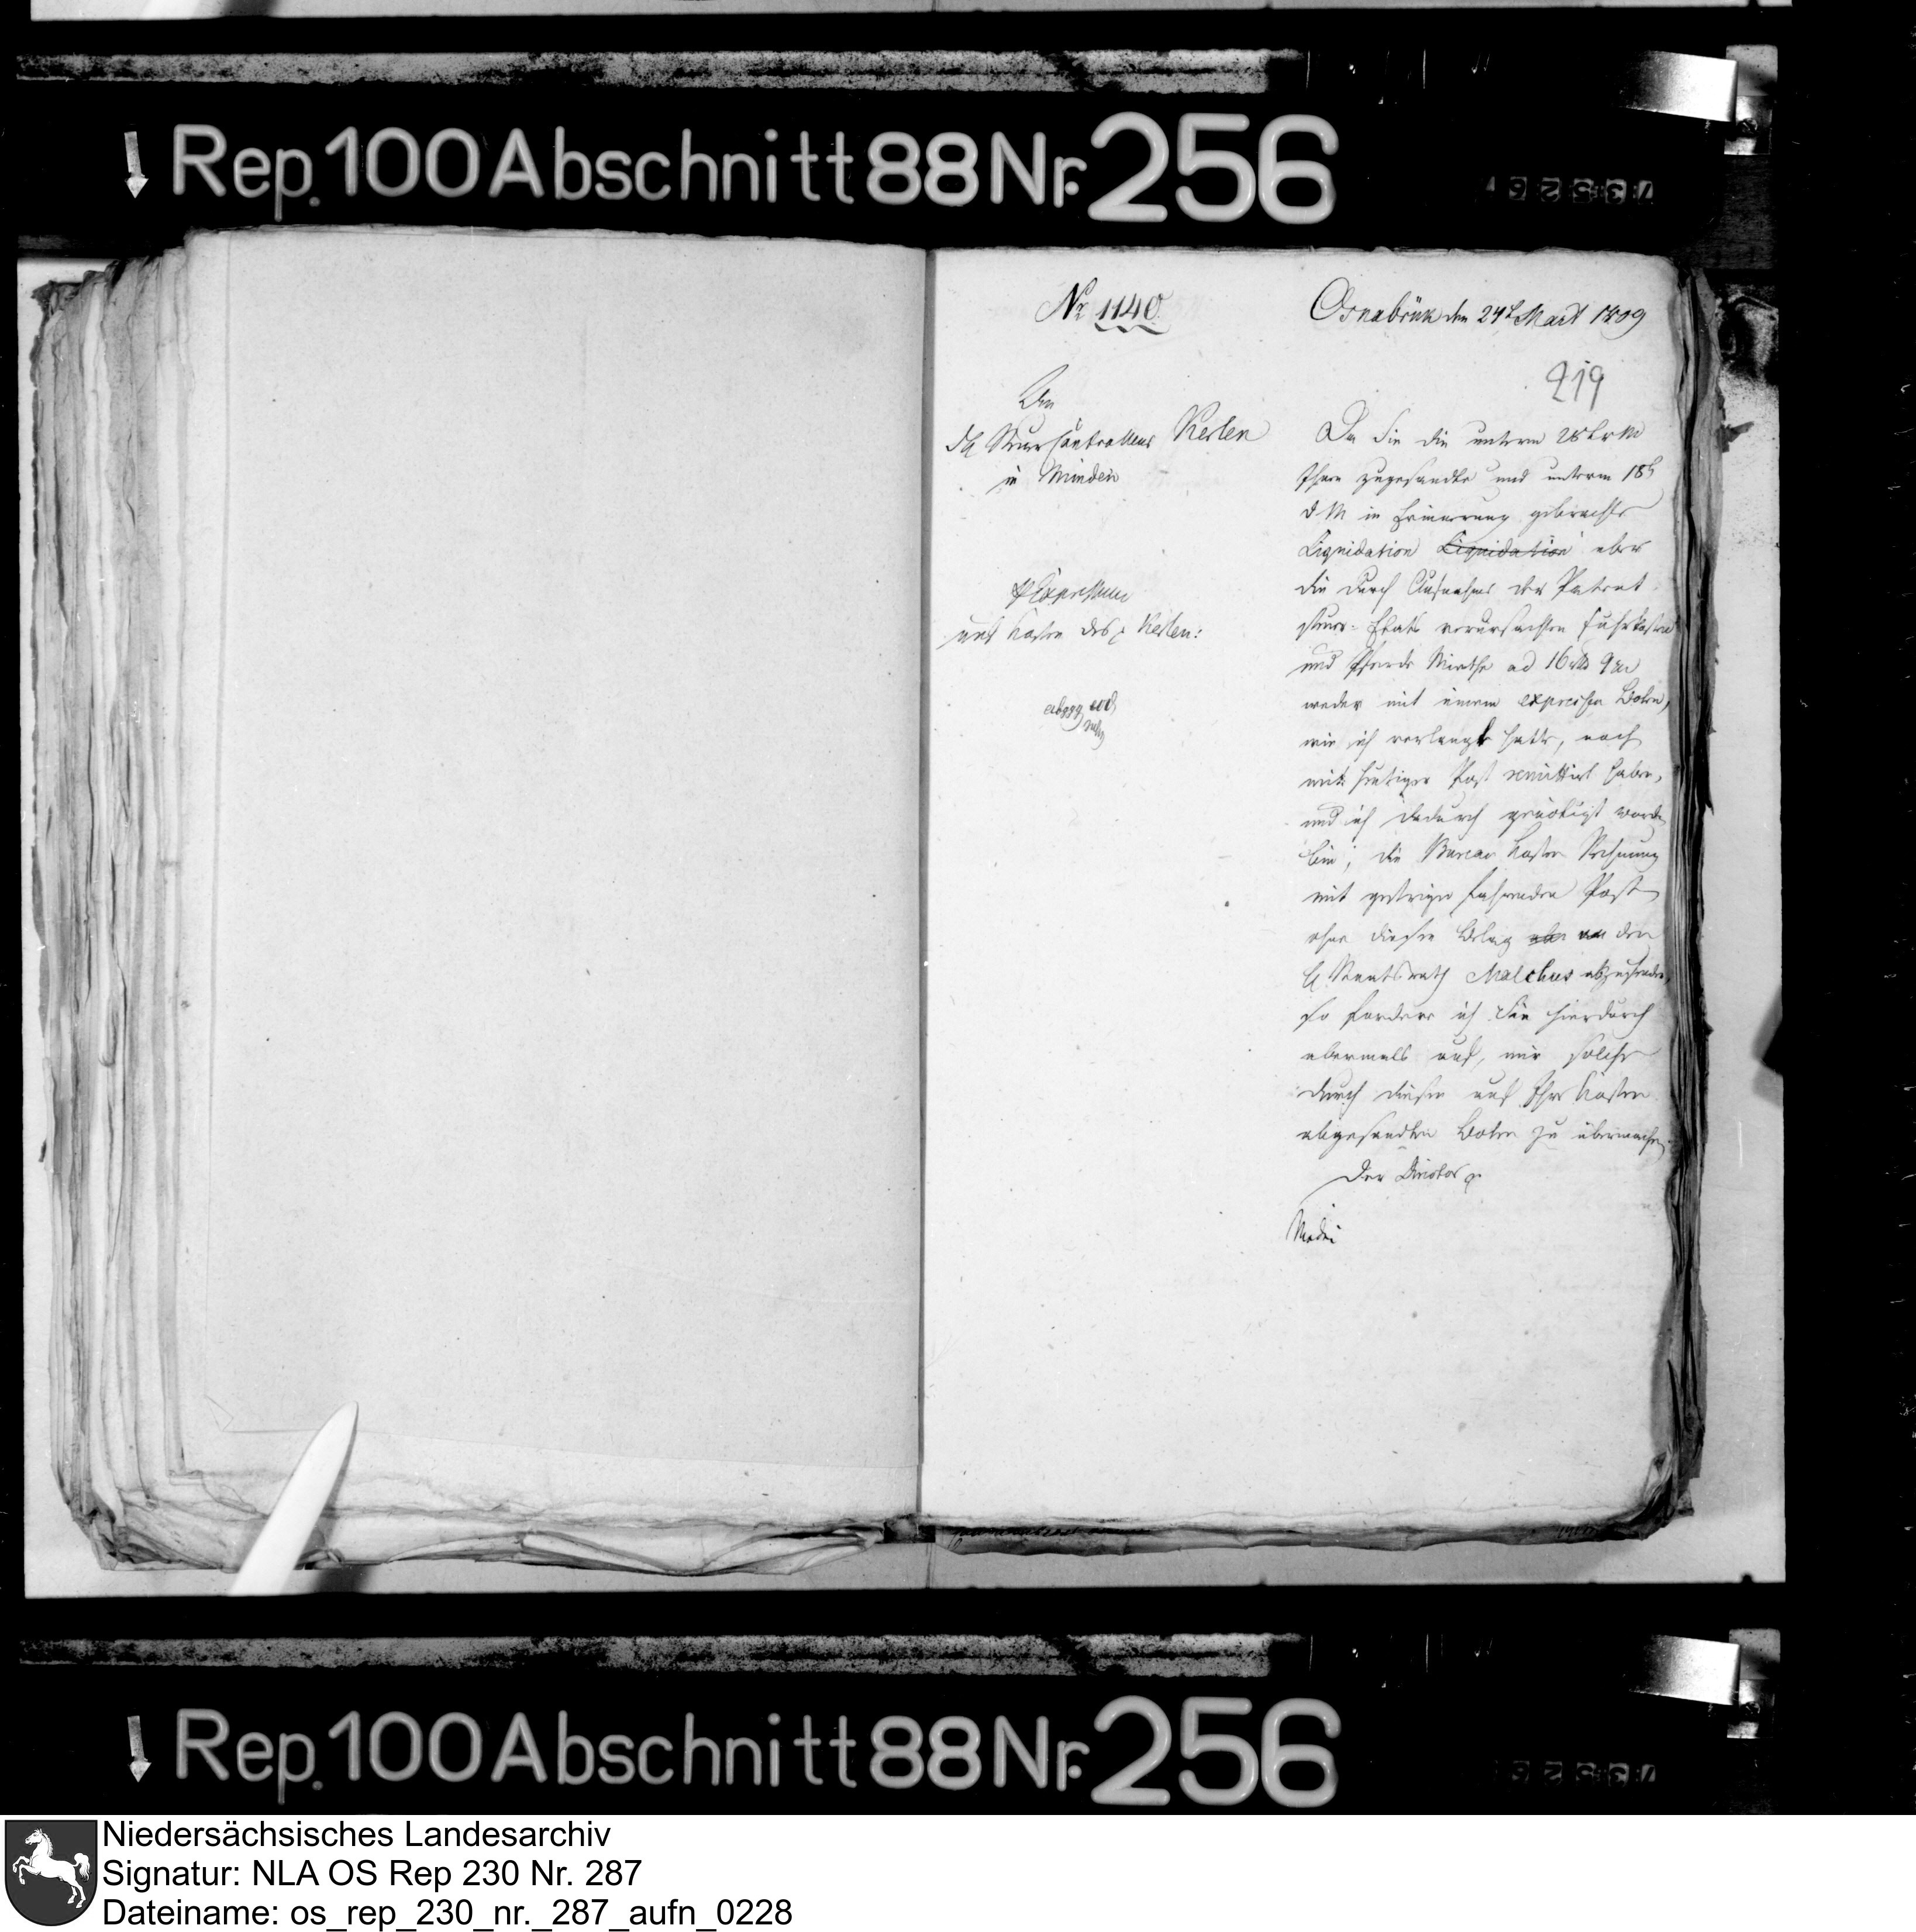 Rep. 100 Abschnitt 88 Nr. 256
No 1140.
Osnabrük den 24t Mart 1809
219
An
den Steuer Controlleur Kerlen
in Minden
p Expressum
auf Kosten des p Kerlen:
abggg eod
Da Sie die unterm 28t v M
Ihnen zugesandte und unterm 18t
d M in Erinnerung gebrachte
Liquidation Liquidation über
die durch Aufnahme der Patent
steuer-Etats verursachten Fuhrkosten
und Pferde Miethe ad 16
weder mit einem expressen Boten,
wie ich verlangt hatte, noch
mit heutiger Post remittirt haben,
und ich dadurch genötigt worden
bin, die Bureau Kosten Rechnung
mit gestriger fahrenden Post
ohne diesen Belag an den
H Staatsrath Malchus abzusenden,
so fordere ich Sie hierdurch
abermals auf, mir solche
durch diesen auf Ihre Kosten
abgesandten Boten zu übermachen
Der Director p.
Rep. 100 Abschnitt 88 Nr. 256
Niedersächsisches Landesarchiv
Signatur: NLA OS Rep 230 Nr. 287
Dateiname: os_rep_230_nr._287_aufn_0228